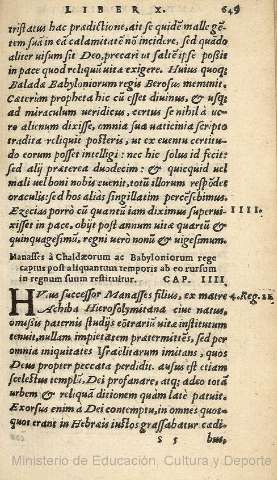 LIBER X. 649
tristatus hac prædictione, ait se quidē malle gē-
tem suā in eā calamitatē nō incidere, sed quādo
aliter uisum sit Deo, precari ut saltē ipse possit
in pace quod reliquū uitæ exigere. Huius quoq;
Balada Babyloniorum regis Berosus meminit.
Cæterùm propheta hic cū esset diuinus, & usq;
ad miraculum ueridicus, certus se nihil à ue-
ro alienum dixisse, omnia sua uaticinia scripto
tradita reliquit posteris, ut ex euentu certitu-
do eorum posset intelligi: nec hic solus id fecit:
sed alij præterea duodecim: & quicquid uel
mali uel boni nobis euenit, totū illorum respōdet
oraculis: sed hos aliàs singillatim percēsebimus.
Ezecias porrò cū quantū iam diximus superui-
xisset in pace, obijt post annum uitæ quartū &
quinquagesimū. regni uerò nonū & uigesimum.
IIII.
Manasses à Chaldæorum ac Babyloniorum rege
captus post aliquantum temporis ab eo rursum
in regnum suum restituitur. CAP. IIII.
HVius successor Manasses filius, ex matre
4. Reg. 21.
Achiba Hierosolymitana ciue natus,
omissis paternis studijs cōtrariū uitæ institutum
tenuit, nullam impietatem prætermittēs, sed per
omnia iniquitates Israelitarum imitans, quos
Deus propter peccata perdidit. ausus est etiam
scelestus templū Dei profanare, atq; adeo totā
urbem & reliquā ditionem quàm latè patuit.
Exorsus enim à Dei contemptu, in omnes quot-
quot erant in Hebræis iustos grassabatur cædi-
S s bus,
Ministerio de Educación, Cultura y Deporte